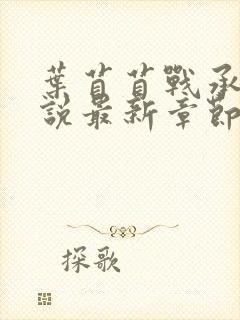 葉苜苜戰承
說最新章節
探歌